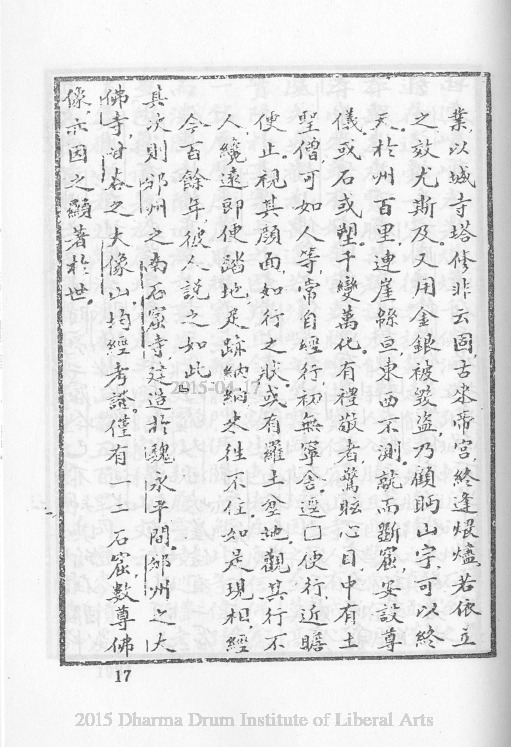 業，以城寺塔修非云固，古來帝宮，終逢煨燼，若依立
之效尤斯及。又用金銀被毀盜，乃顧眄山宇，可以終
天。於州百里，連崖綿亘，東西不測，就而斲窟，安設尊
儀，或石或塑，千變萬化。有禮敬者，驚眩心目，中有土
聖僧，可如人等，常自經行，初無寧舍，遥□便行，近瞻
便止，視其顏面，如行之狀。或有羅土坌地，觀其行不
人，纔遠即便踏地，足跡納納，來往不住，如是現相，經
今百餘年，彼人說之如此。
其次則邠州之石窟寺，建造於魏永平間，邠州之大
佛寺，甘谷之大像山，均經考證，僅有一二石窟，數尊佛
像，亦因之顯著於世。
17
2015-04-17
2015 Dharma Drum Institute of Liberal Arts